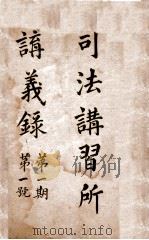 司法講習所
講義錄
第一期
第一號
mtoou.info